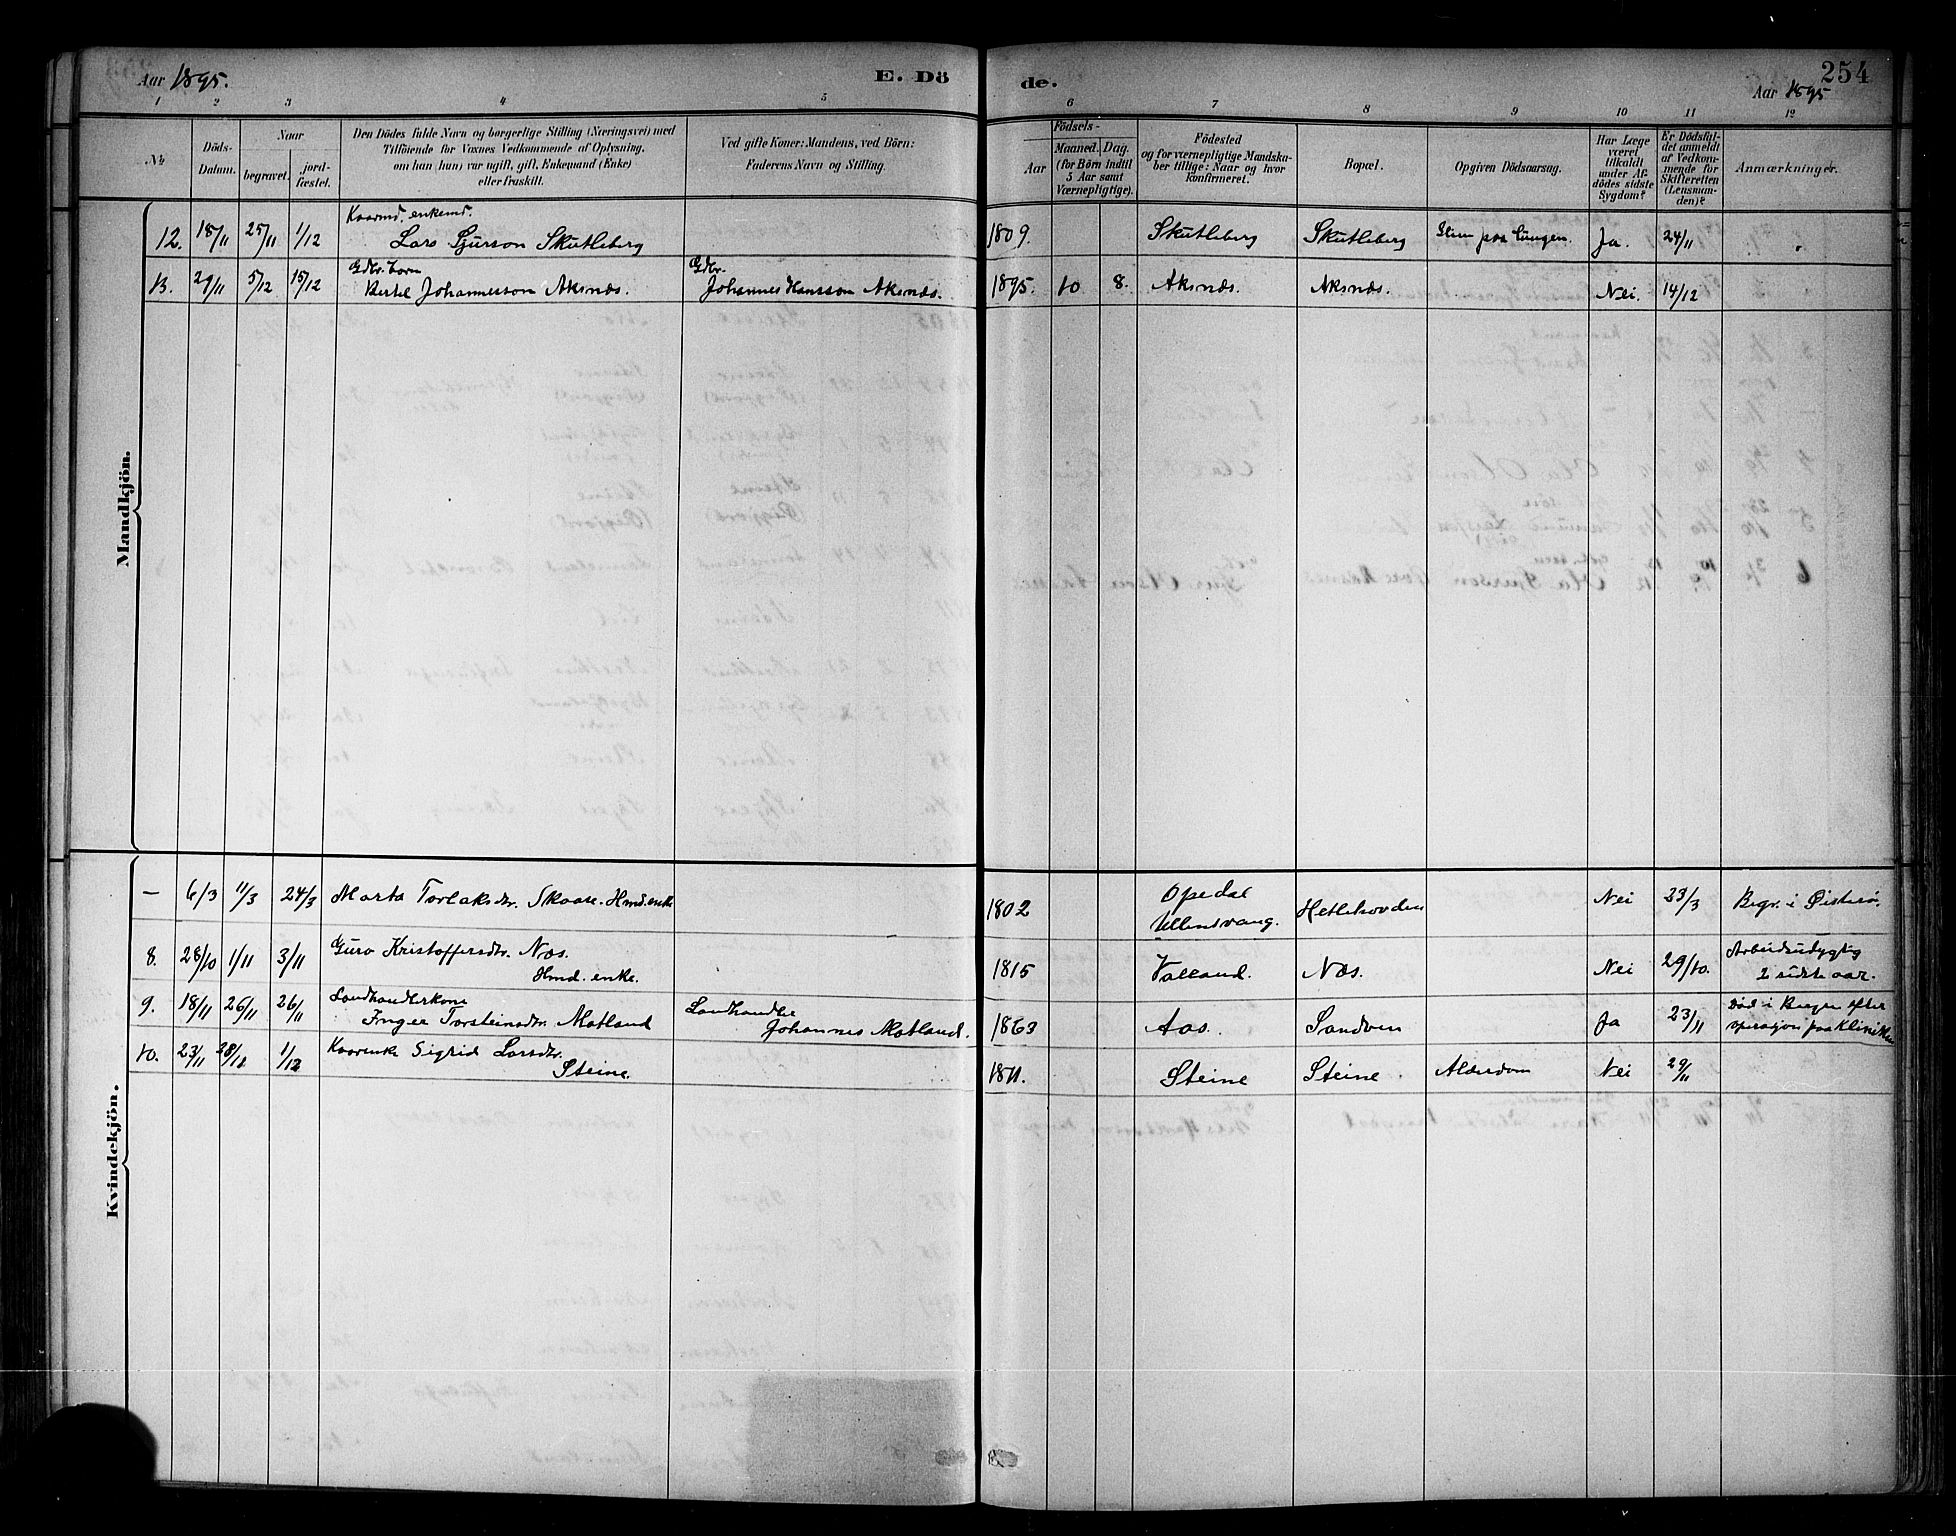 Aar 1895.
E. Dö
de.
254
Aar 1895
1 2 3 4 5 6 7 8 9 10 11 12
№
Döds-Datum.
Naar
begravet.
jord-fæstet.
Den Dödes fulde Navn og borgerlige Stilling (Næringsvei) med
Tilföiende for Voxnes Vedkommende af Oplysning,
om han (hun) var ugift, gift, Enkemand (Enke)
eller fraskilt.
Ved gifte Koner: Mandens, ved Börn:
Faderens Navn og Stilling.
Födsels-
Aar
Maaned. Dag.
(for Börn indtil
5 Aar samt
Værnepligtige).
Födested
og for værnepligtige Mandska-
ber tillige: Naar og hvor
konfirmeret.
Bopæl.
Opgiven Dödsaarsag.
Har Læge
været
tilkaldt
under Af-
dödes sidste
Sygdom?
Er Dödsfal-
det anmeldt
af Vedkom-
mende for
Skifteretten
(Lensman-
den)?
Anmærkninger.
Mandkjön.
Kaarmd. enkemd.
12. 18/11 25/11 1/12 Lars Sjurson Skutleberg 1809. Skutleberg Skutleberg Slim paa lungen. Ja. 24/11
Gdbr. born Gdbr.
13. 29/11 5/12 15/12 Bertel Johannesson Aksnæs. Johannes Hansson Aksnæs. 1895. 10 8. Aksnæs. Aksnæs. Nei. 14/12
Kvindekjön.
— 6/3 11/3 24/3 Marta Torlaksdtr. Skaare. Hmd. enke 1802 Opedal Ullensvang. Hetlehovden Nei 23/3 Begr. i Øistesø.
8. 28/10 1/11 3/11 Guro Kristoffersdtr. Næs. 1815 Valland. Næs. Nei 29/10. Arbeidsudygtig
Hmd. enke. 2 sidste aar.
9. 18/11 26/11 26/11 Landhandlerkone Landhandler Død i Bergen efter
Inger Torsteinsdtr. Matland Johannes Matland. 1863 Aas. Sandven Ja 23/11 operasjon paa Kliniken
10. 23/11 28/11 1/12 Kaarenke Sigrid Larsdtr.
Steine. 1811. Steine Steine. Alderdom Nei 29/11